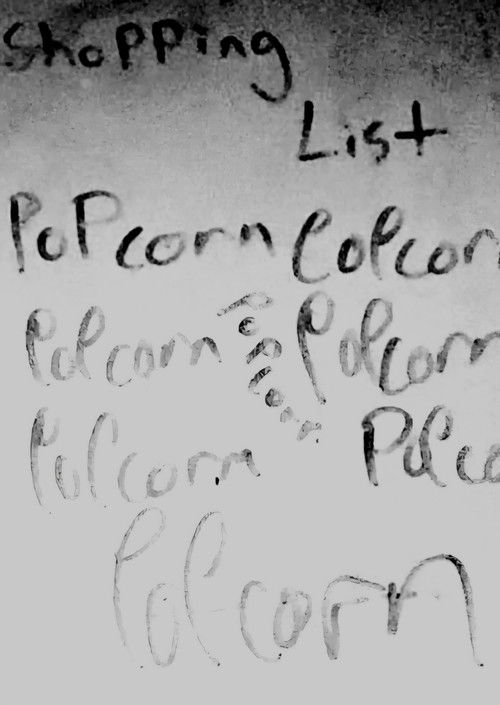 Shopping
List
Popcorn Popcorn
Popcorn Popcorn Popcorn
Popcorn Popco
Popcorn